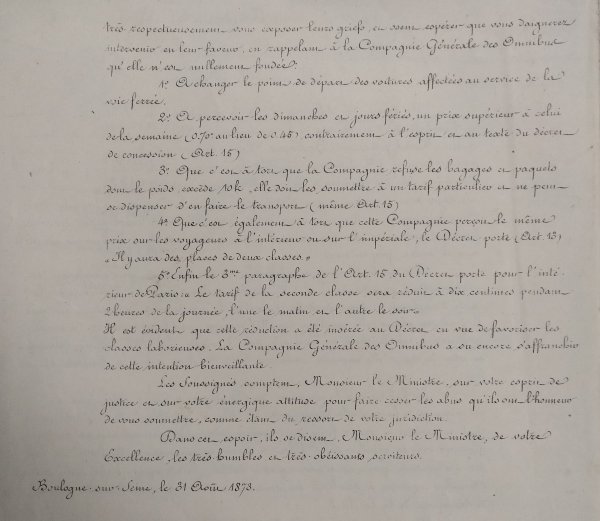 très respectueusement vous exposer leurs griefs, et osent espérer que vous daignerez
intervenir en leur faveur, en rappelant à la Compagnie Générale des Omnibus
qu'elle n'est nullement fondée:
1º A changer le point de départ des voitures affectées au service de la
voie ferrée.
2º A percevoir les dimanches et jours fériés, un prix supérieur à celui
de la semaine (0.70 au lieu de 0.45) contrairement à l'esprit et au texte du décret
de concession (Art. 15)
3º Que c'est à tort que la Compagnie refuse les bagages et paquets
dont le poids excède 10k, elle doit les soumettre à un tarif particulier et ne peut
se dispenser d'en faire le transport (même Art. 15)
4º Que c'est également à tort que cette Compagnie perçoit le même
prix sur les voyageurs à l'intérieur ou sur l'impériale, le Décret porte (Art. 15)
« Il y aura des places de deux classes. »
5º Enfin le 3me paragraphe de l'Art. 15 du Décret porte pour l'inté-
rieur de Paris: « Le tarif de la seconde classe sera réduit à dix centimes pendant
2 heures de la journée, l'une le matin et l'autre le soir. »
Il est évident que cette réduction a été insérée au Décret en vue de favoriser les
classes laborieuses. La Compagnie Générale des Omnibus a su encore s'affranchir
de cette intention bienveillante.
Les Soussignés comptent, Monsieur le Ministre, sur votre esprit de
justice et sur votre énergique attitude pour faire cesser les abus qu'ils ont l'honneur
de vous soumettre, comme étant du ressort de votre juridiction.
Dans cet espoir, ils se disent, Monsieur le Ministre, de votre
Excellence, les très humbles et très obéissants serviteurs.
Boulogne-sur-Seine, le 31 Août 1873.